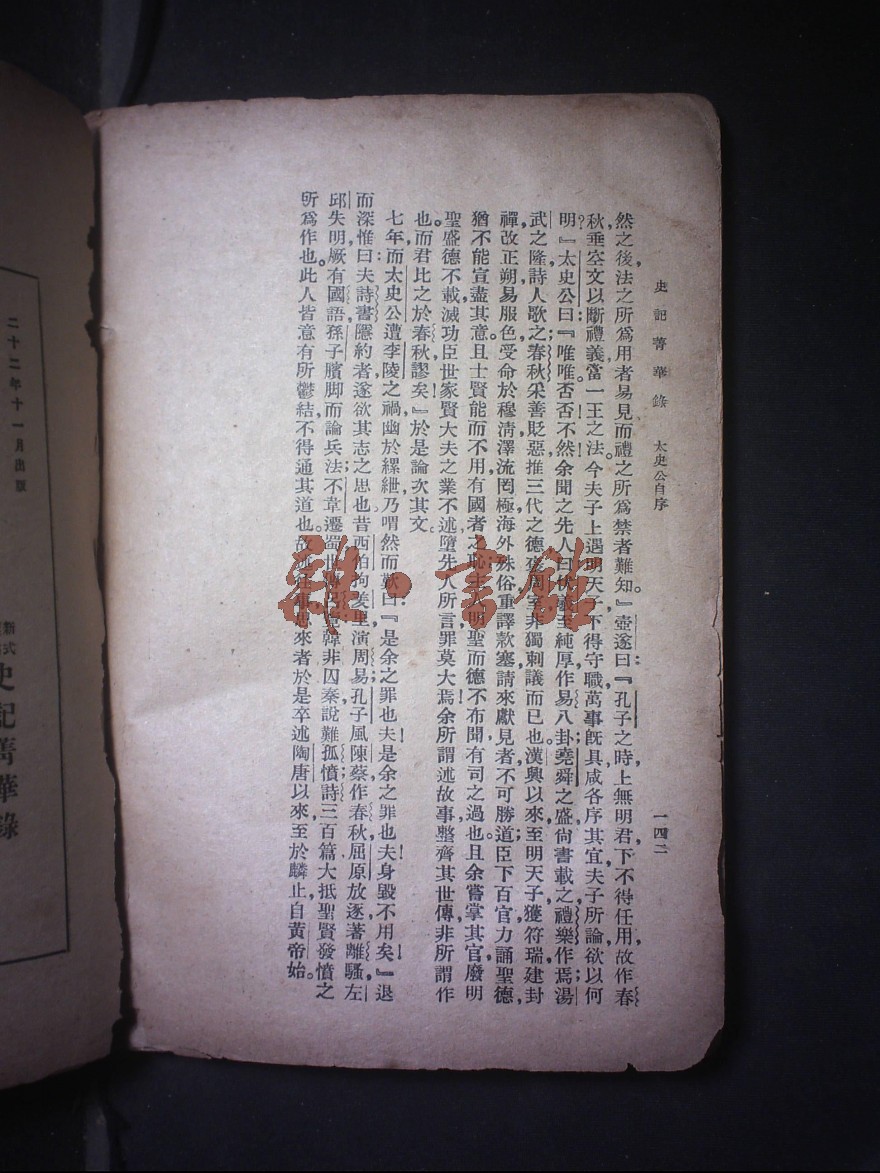 史記菁華錄 太史公自序 一四二
然之後法之所爲用者易見而禮之所爲禁者難知。』壺遂曰：『孔子之時上無明君，下不得任用，故作春
秋，垂空文以斷禮義，當一王之法。今夫子上遇明天子，下得守職，萬事旣具，咸各序其宜，夫子所論，欲以何
明？』太史公曰：『唯唯，否否，不然。余聞之先人曰：伏羲至純厚，作易八卦；堯舜之盛，尙書載之，禮樂作焉；湯
武之隆，詩人歌之；春秋采善貶惡，推三代之德，襃周室，非獨刺譏而已也。漢興以來，至明天子，獲符瑞，建封
禪，改正朔，易服色，受命於穆淸，澤流罔極，海外殊俗，重譯款塞，請來獻見者，不可勝道。臣下百官，力誦聖德，
猶不能宣盡其意。且士賢能而不用，有國者之恥；主上明聖而德不布聞，有司之過也。且余嘗掌其官，廢明
聖盛德不載，滅功臣世家賢大夫之業不述，墮先人所言，罪莫大焉。余所謂述故事，整齊其世傳，非所謂作
也。而君比之於春秋，謬矣。』於是論次其文。
七年而太史公遭李陵之禍，幽於縲紲，乃喟然而歎曰：『是余之罪也夫！是余之罪也夫！身毀不用矣！』退
而深惟曰：夫詩書隱約者，遂欲其志之思也。昔西伯拘羑里，演周易；孔子風陳蔡，作春秋；屈原放逐，著離騷；左
邱失明，厥有國語；孫子臏脚，而論兵法；不韋遷蜀，世傳呂覽；韓非囚秦，說難孤憤；詩三百篇，大抵聖賢發憤之
所爲作也。此人皆意有所鬱結，不得通其道也。故述往事，思來者。於是卒述陶唐以來，至於麟止，自黃帝始。
二十二年十一月出版
新式
史記菁華錄
雜·書館